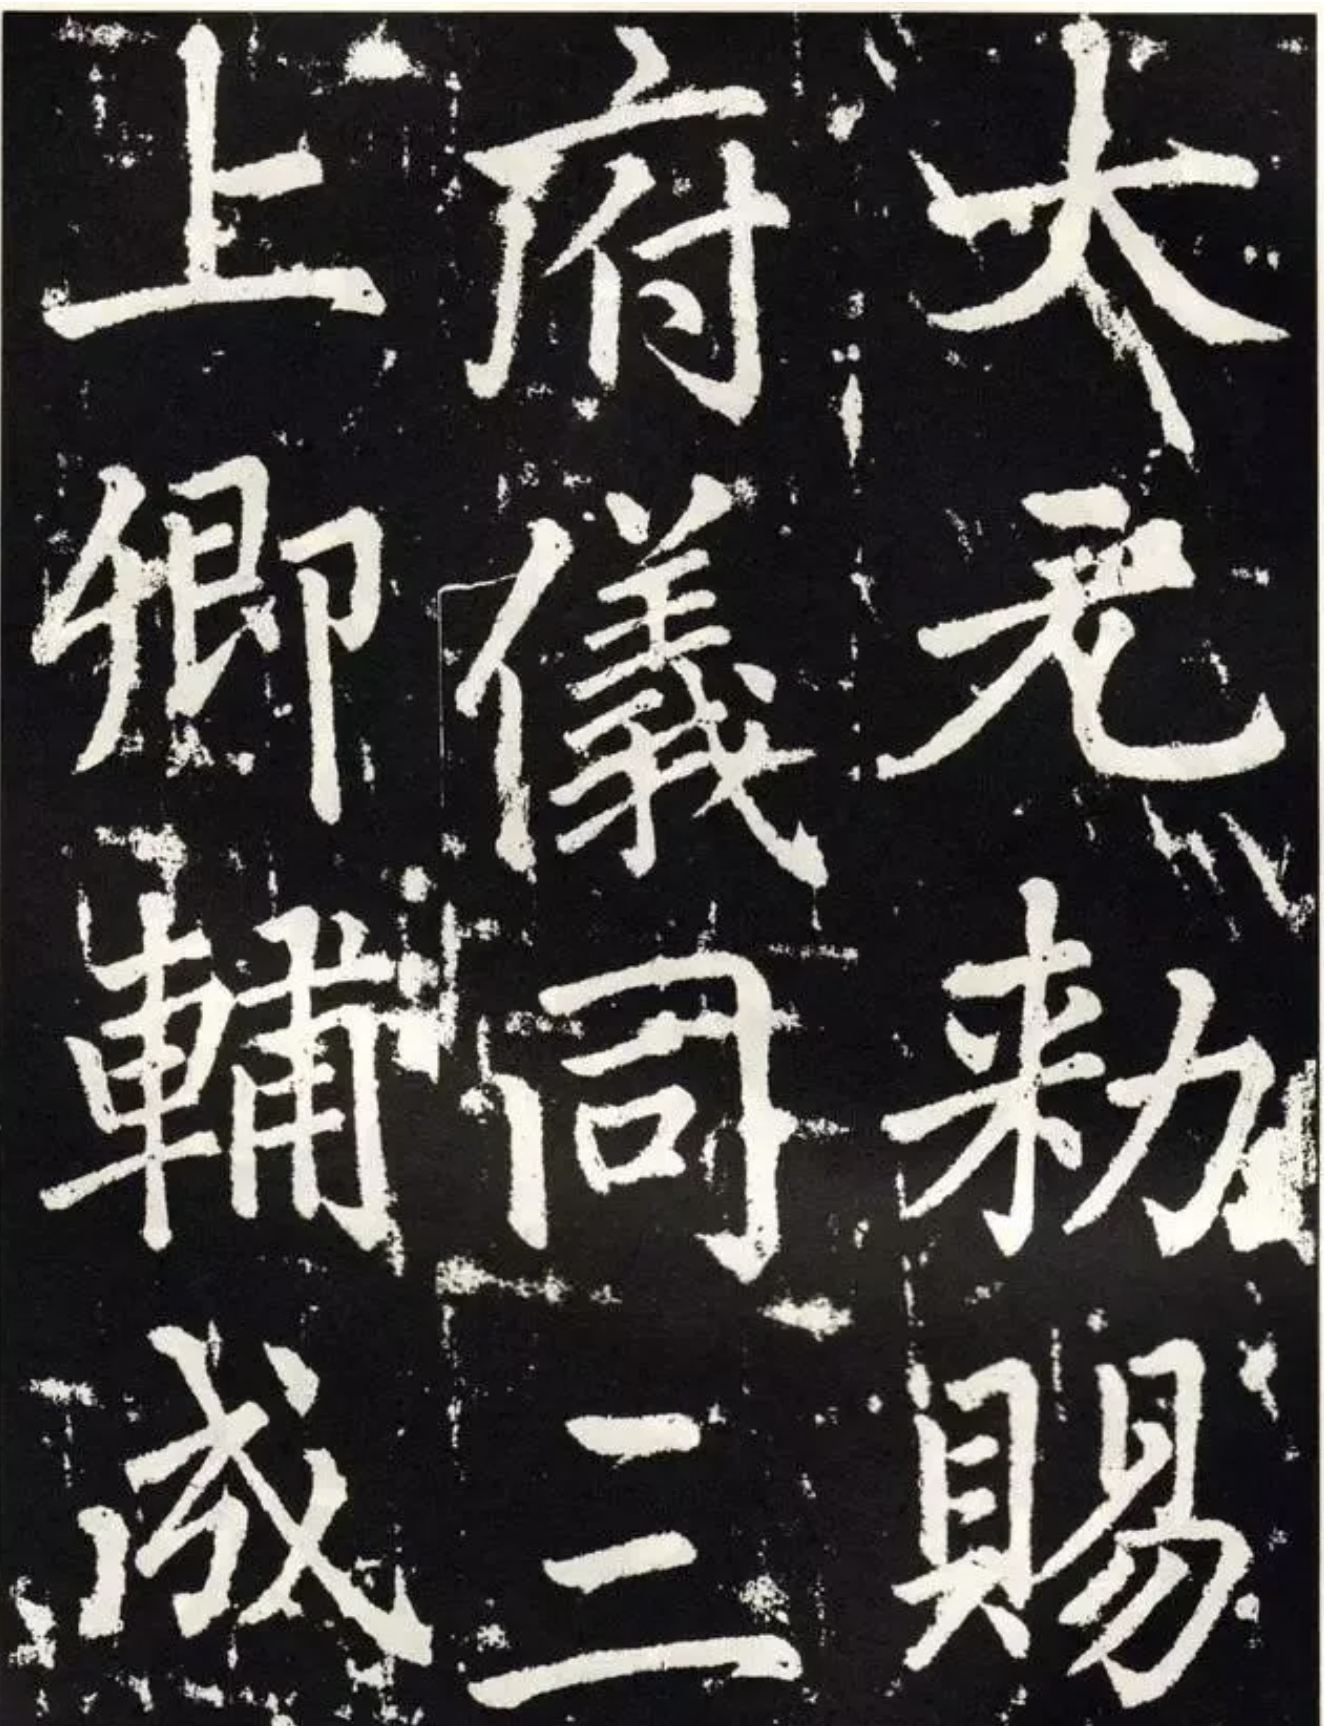 大元敕賜
府儀同三
上卿輔成